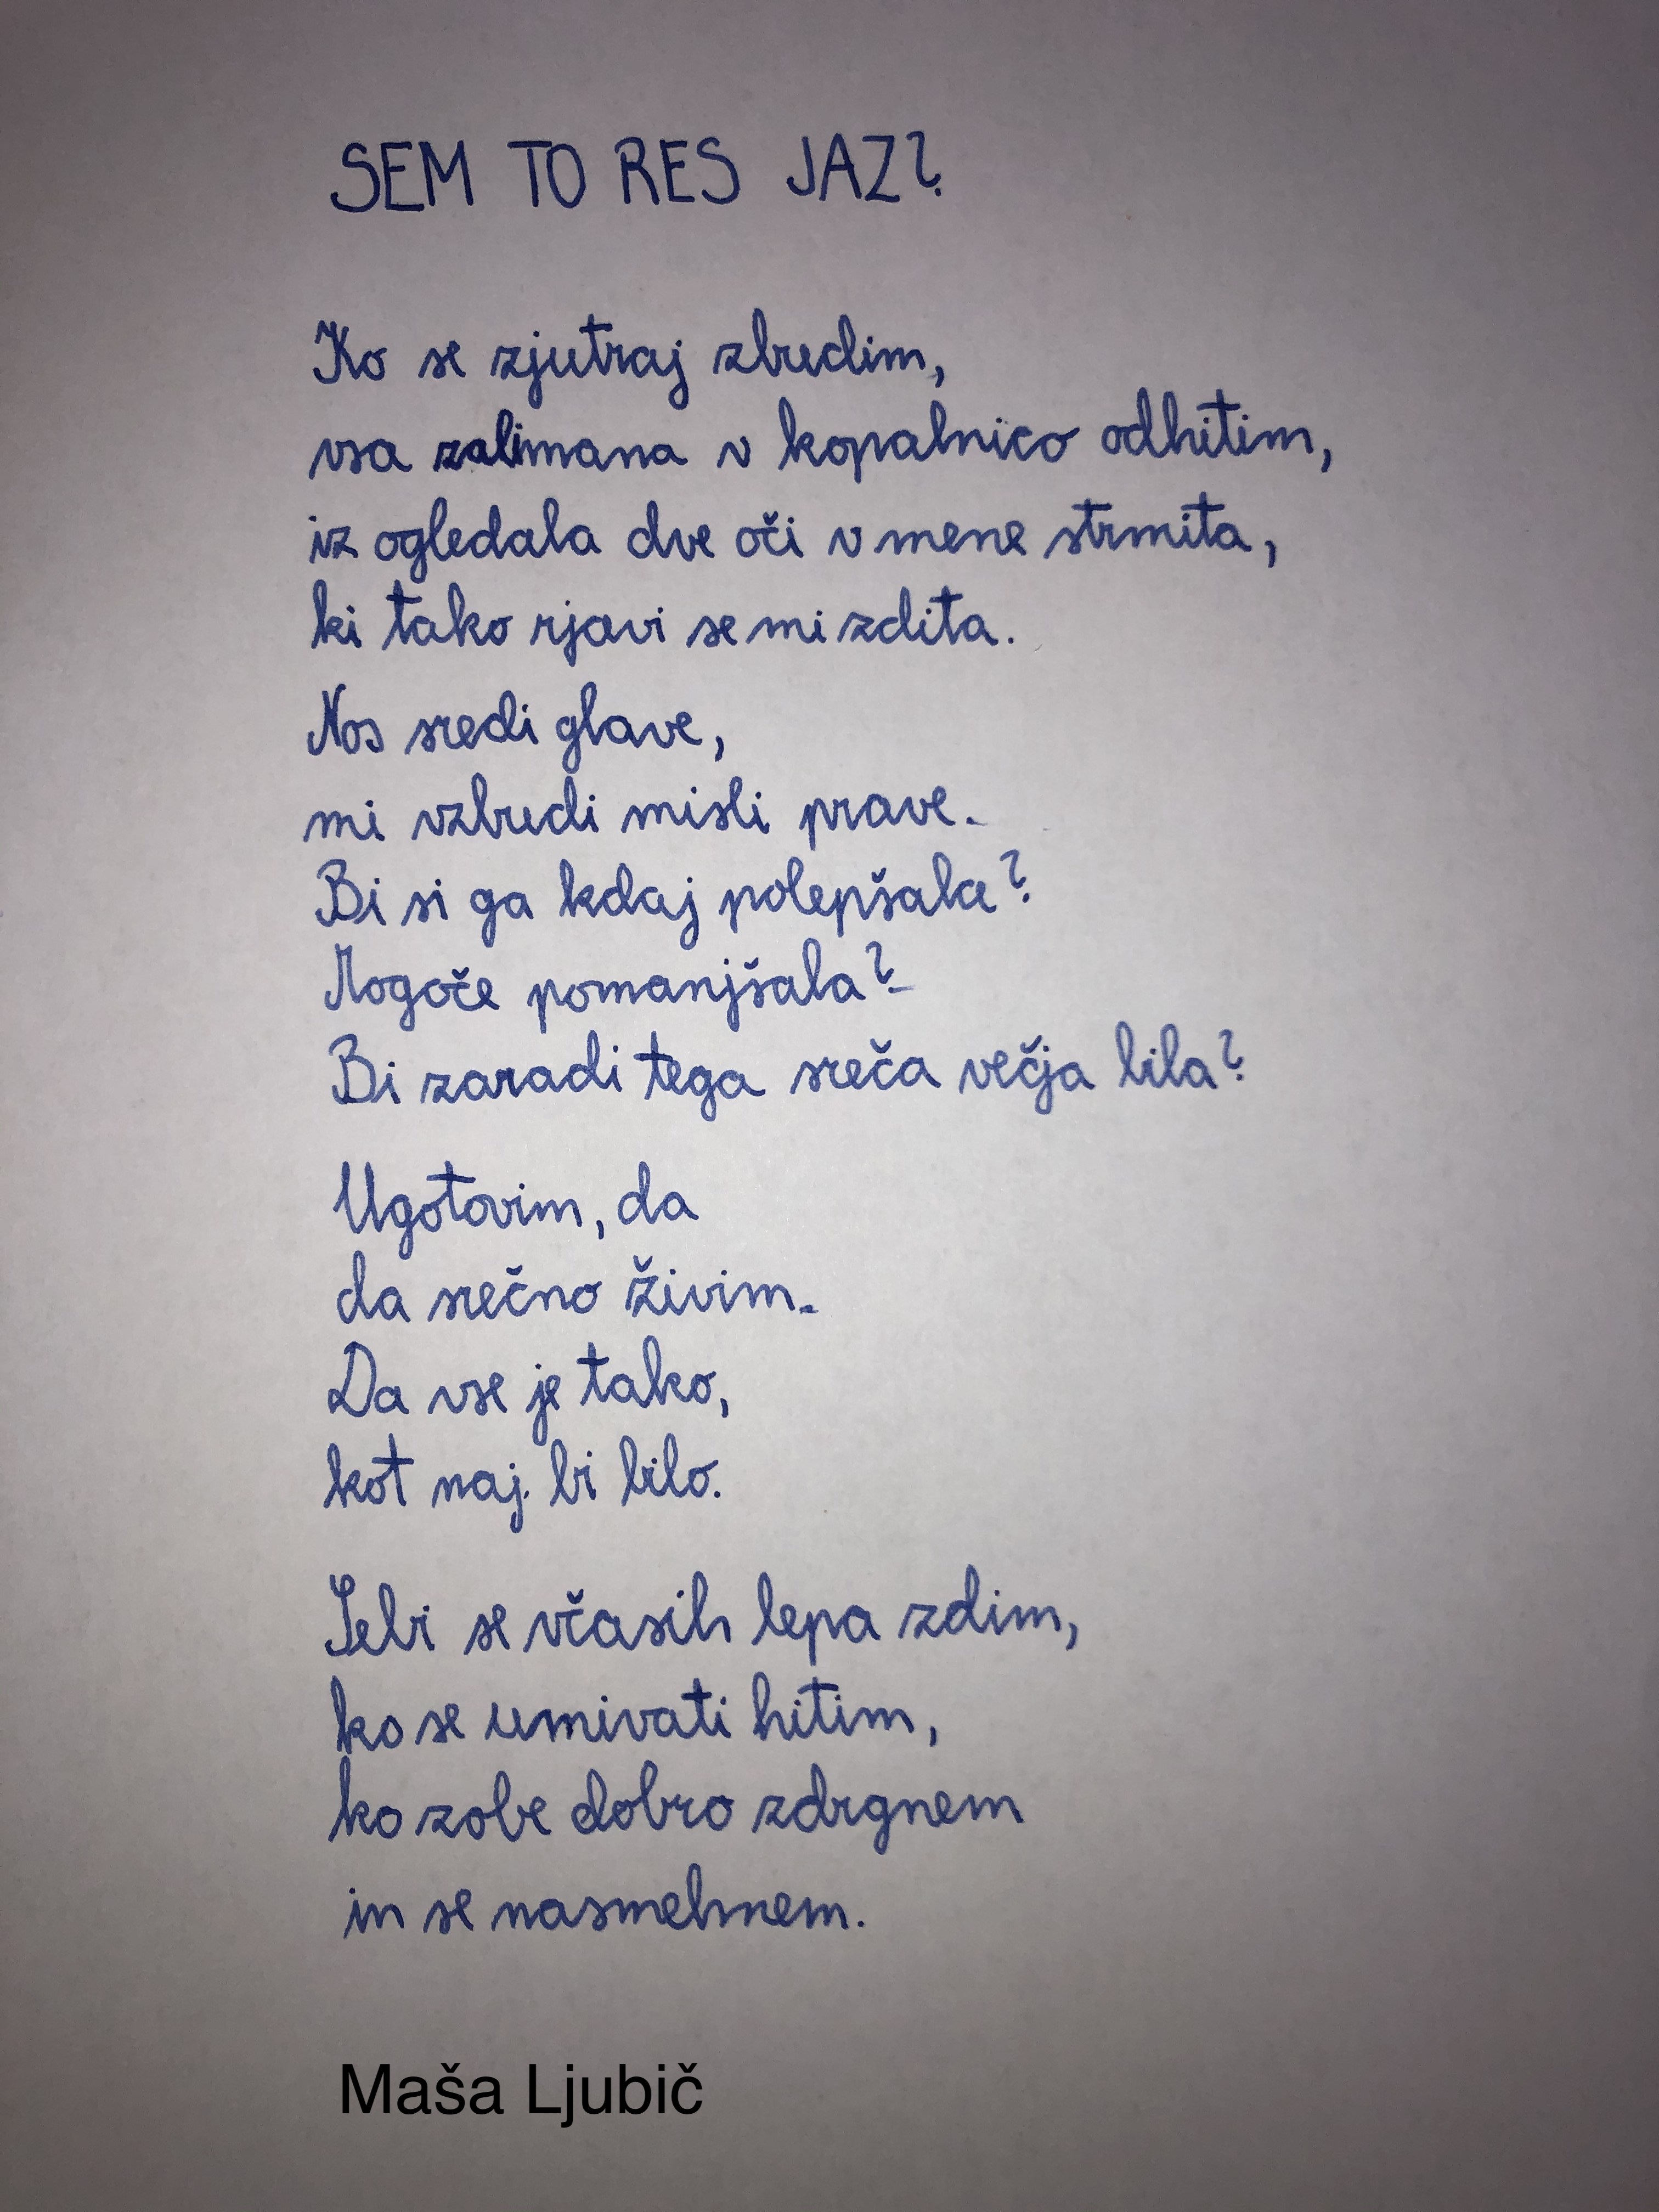 SEM TO RES JAZ?
Ko se zjutraj zbudim,
vsa zalimana v kopalnico odhitim,
iz ogledala dve oči v mene strmita,
ki tako rjavi se mi zdita.
Nos sredi glave,
mi vzbudi misli prave.
Bi si ga kdaj polepšala?
Mogoče pomanjšala?
Bi zaradi tega sreča večja bila?
Ugotovim, da
da srečno živim.
Da vse je tako,
kot naj bi bilo.
Sebi se včasih lepa zdim,
ko se umivati hitim,
ko zobe dobro zdrgnem
in se nasmehnem.
Maša Ljubič